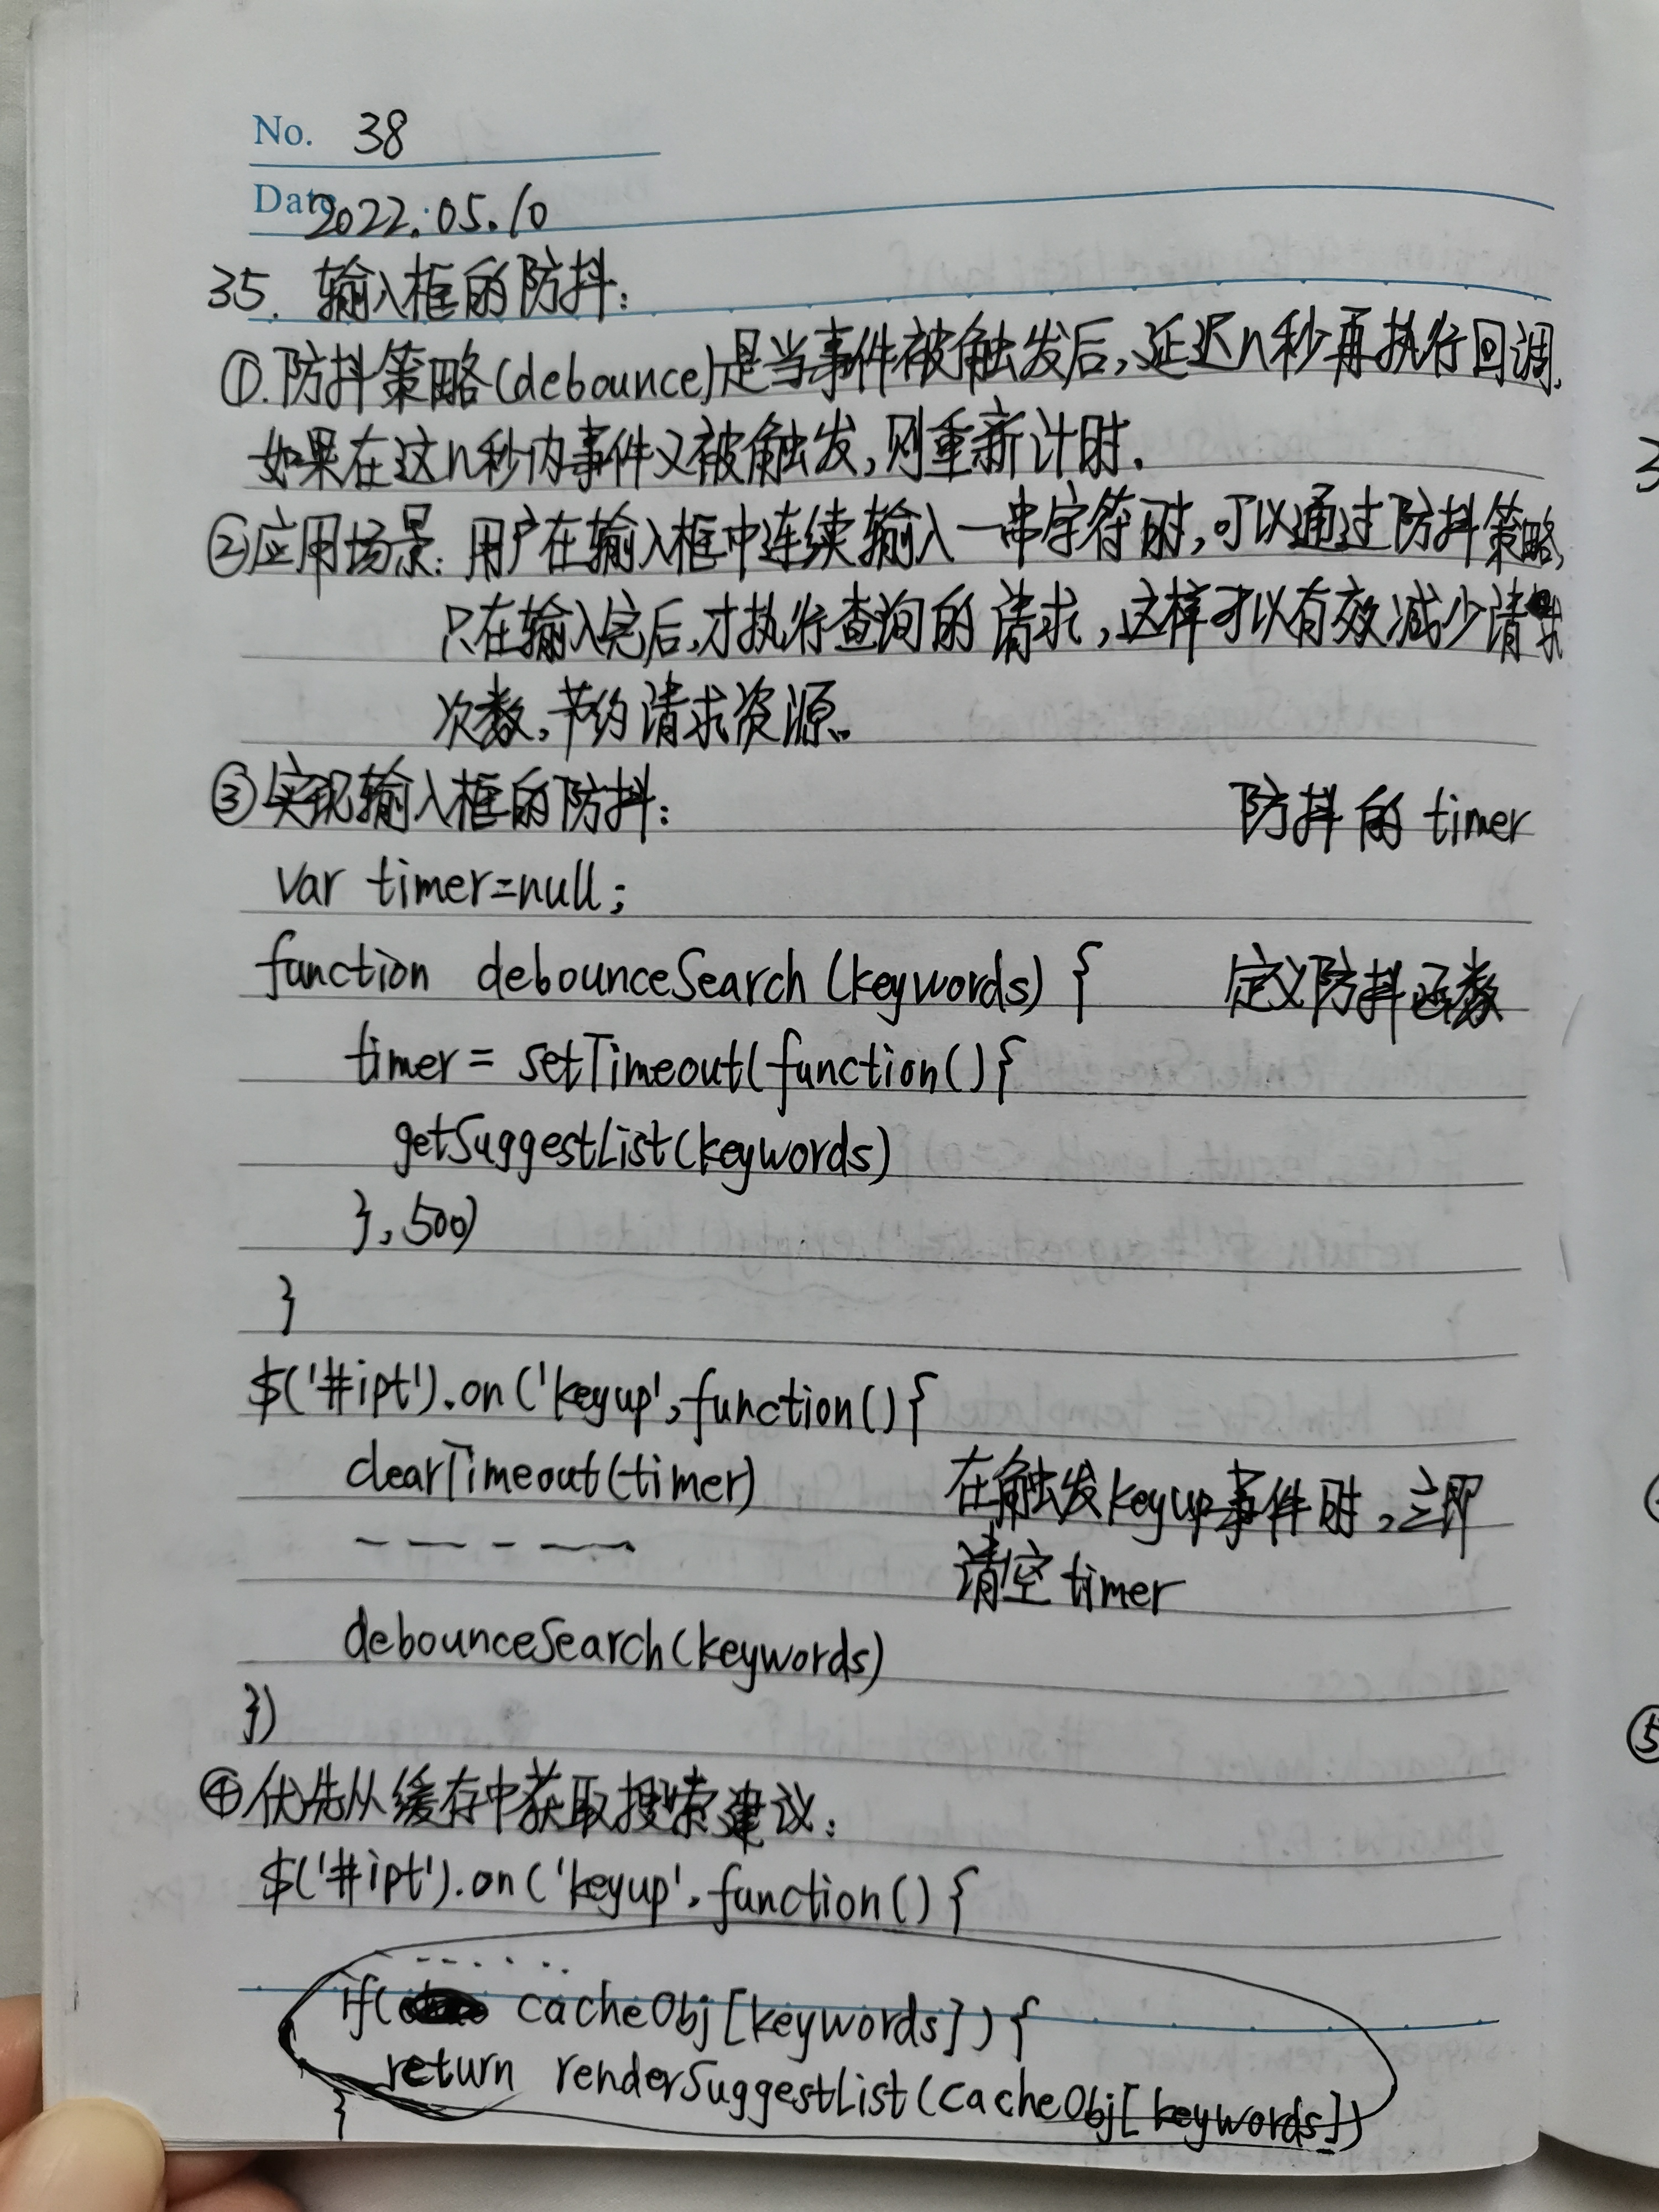 No. 38
Date 2022.05.10
35. 输入框的防抖:
①.防抖策略(debounce)是当事件被触发后,延迟n秒再执行回调,
如果在这n秒内事件又被触发,则重新计时.
②应用场景: 用户在输入框中连续输入一串字符时,可以通过防抖策略,
只在输入完后,才执行查询的请求,这样可以有效减少请求
次数,节约请求资源.
③实现输入框的防抖: 防抖的timer
var timer=null;
function debounceSearch(keywords) { 定义防抖函数
timer = setTimeout(function(){
getSuggestList(keywords)
},500)
}
$('#ipt').on('keyup',function(){
clearTimeout(timer) 在触发keyup事件时,立即
清空timer
debounceSearch(keywords)
})
④优先从缓存中获取搜索建议:
$('#ipt').on('keyup',function(){
......
if( cacheObj[keywords]){
return renderSuggestList(cacheObj[keywords])
}
⑤